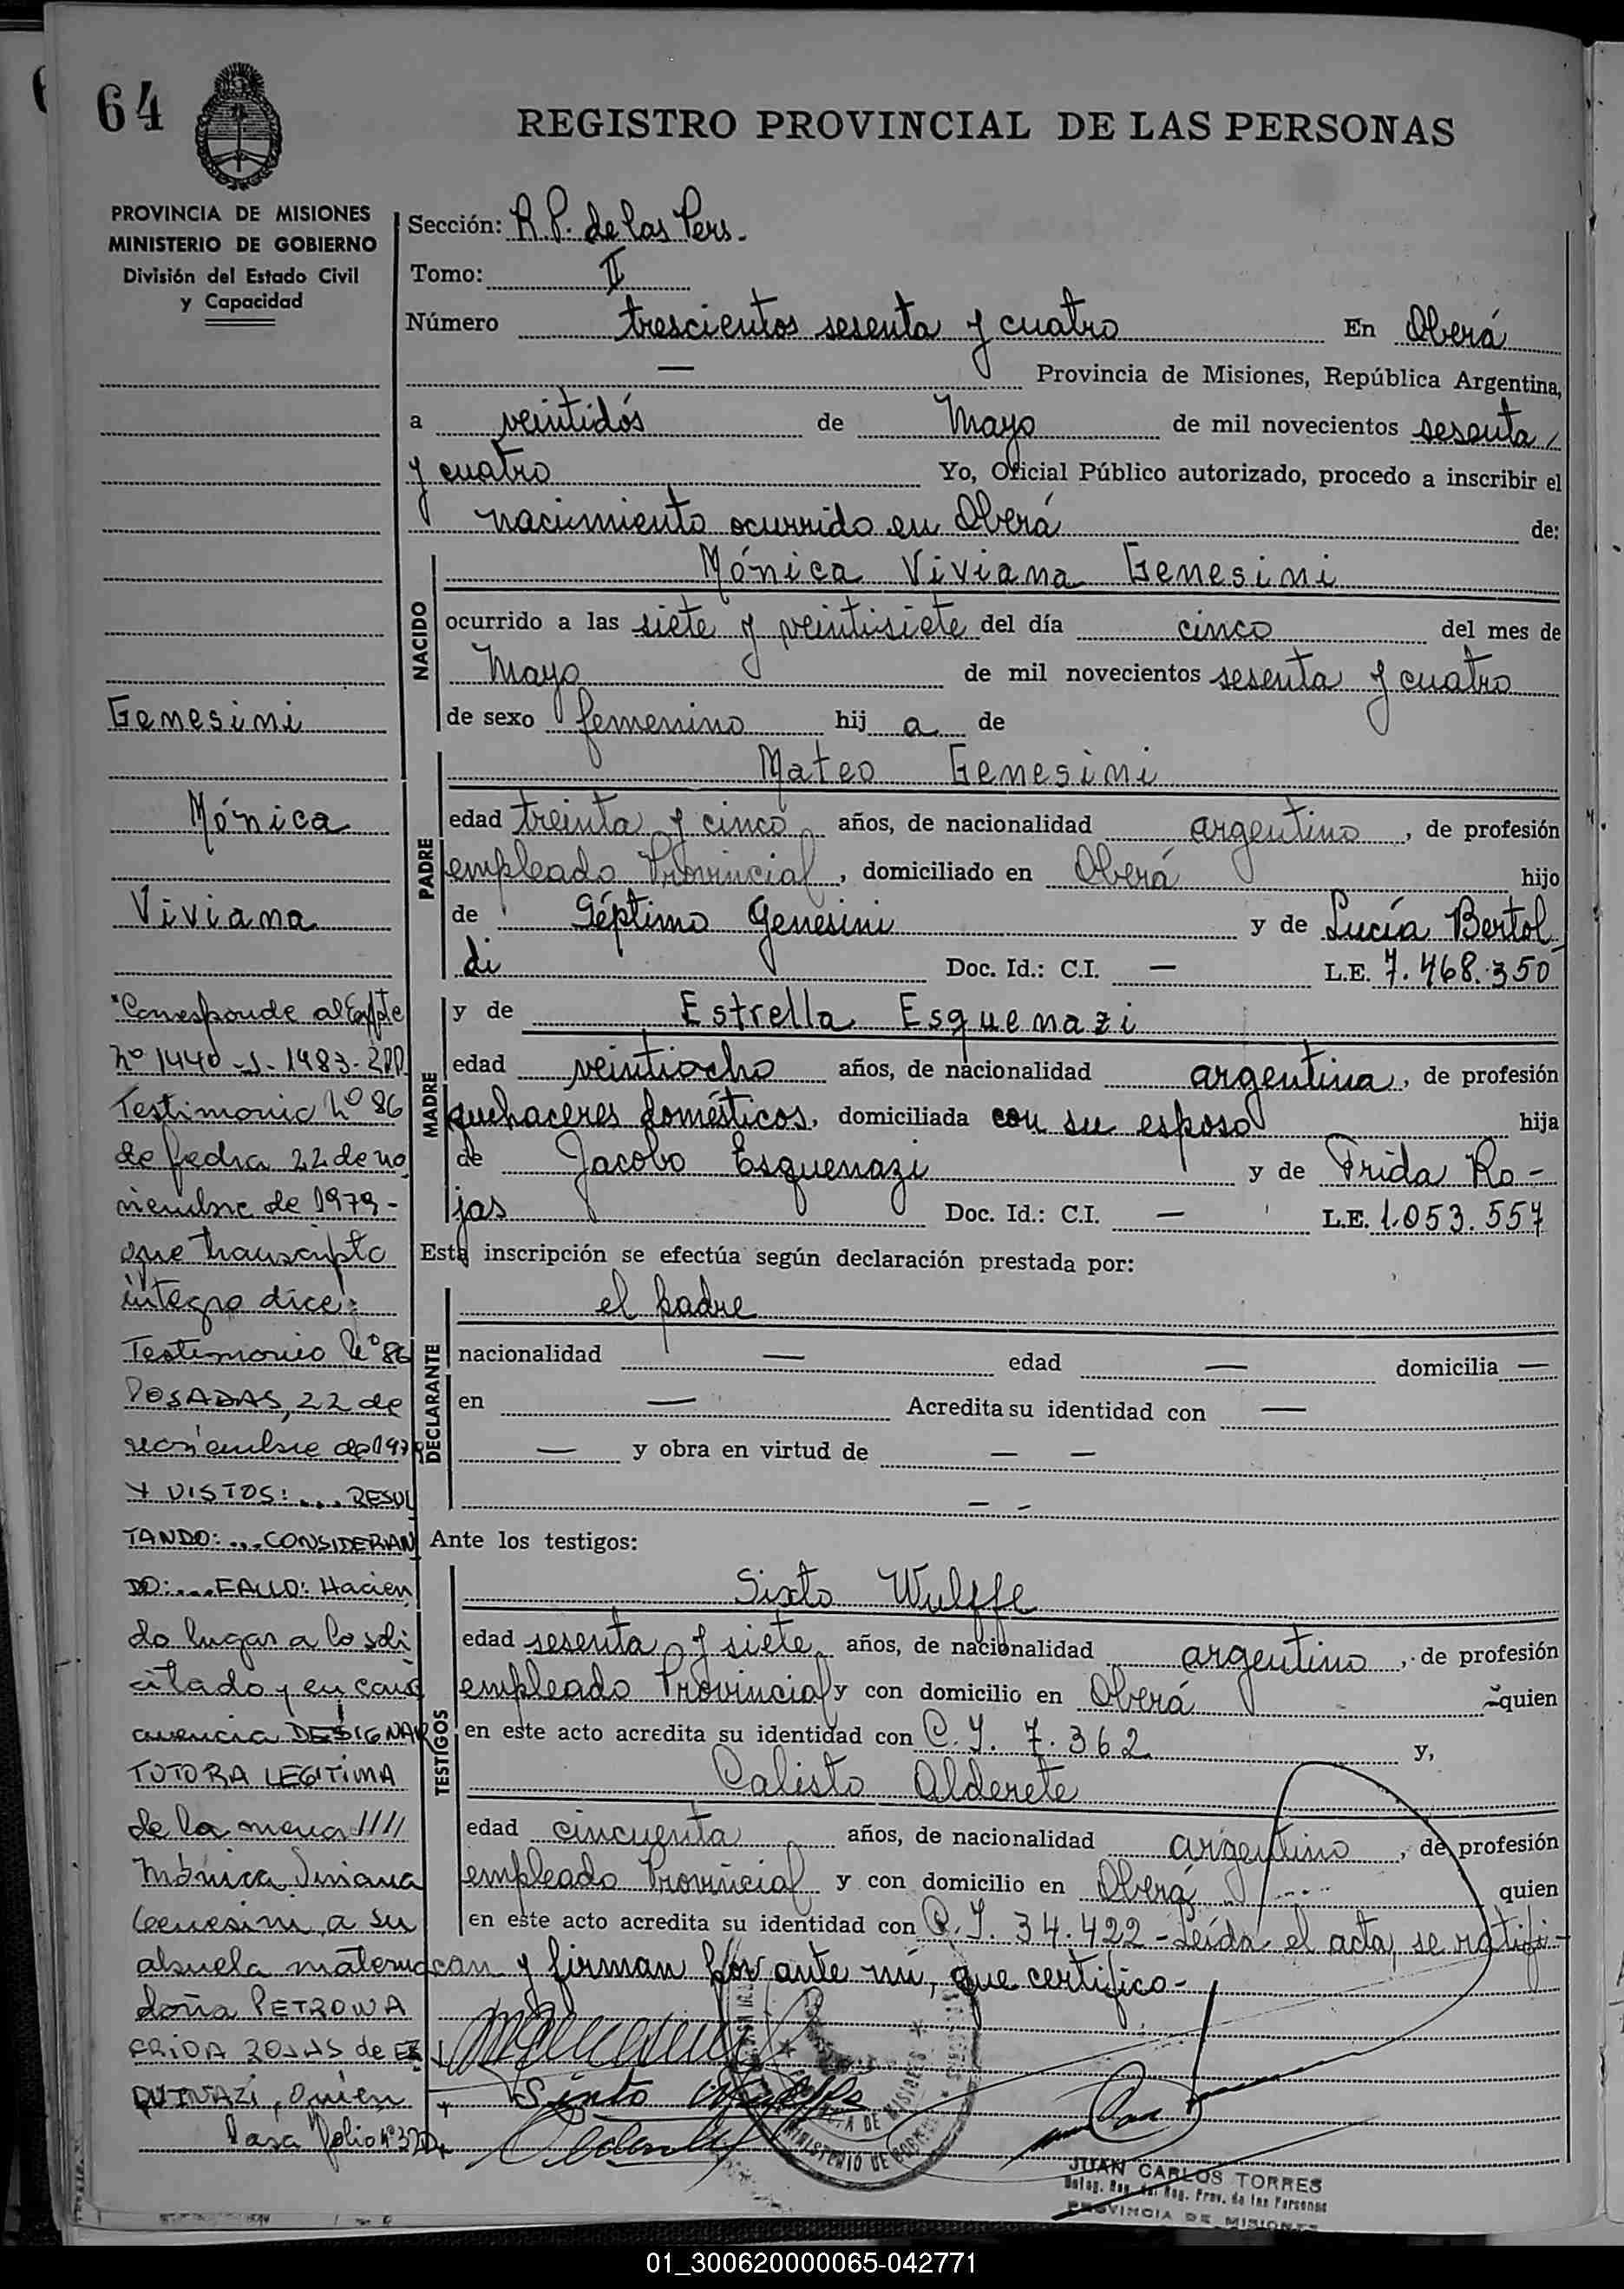 64
REGISTRO PROVINCIAL DE LAS PERSONAS
PROVINCIA DE MISIONES
MINISTERIO DE GOBIERNO
División del Estado Civil
y Capacidad
Genesini
Mónica
Viviana
Corresponde al Expte
Nº 1440-J-1983-
Testimonio Nº 86
de fecha 22 de no
viembre de 1979-
que transcripto
íntegro dice:
Testimonio Nº 86
POSADAS, 22 de
noviembre de 197
Y VISTOS:.... RESUL
TANDO:...CONSIDERAN
DO:....FALLO: Hacien
do lugar a lo soli
citado y en conse
cuencia DESIGNAR
TUTORA LEGITIMA
de la menor ////
Mónica Viviana
Genesini, a su
abuela materna
doña PETRONA
FRIDA ROJAS de ES
QUENAZI, quien
Pasa folio nº
Sección: R.P. de las Pers.
Tomo: II
Número trescientos sesenta y cuatro En Oberá
— Provincia de Misiones, República Argentina,
a veintidós de Mayo de mil novecientos sesenta /
y cuatro Yo, Oficial Público autorizado, procedo a inscribir el
nacimiento ocurrido en Oberá de:
NACIDO
Mónica Viviana Genesini
ocurrido a las siete y veintisiete del día cinco del mes de
Mayo de mil novecientos sesenta y cuatro
de sexo femenino hij a de
PADRE
Mateo Genesini
edad treinta y cinco años, de nacionalidad argentino, de profesión
empleado Provincial, domiciliado en Oberá hijo
de Séptimo Genesini y de Lucía Bertol
di Doc. Id.: C.I. — L.E. 7.468.350
MADRE
y de Estrella Esquenazi
edad veintiocho años, de nacionalidad argentina, de profesión
quehaceres domésticos, domiciliada con su esposo hija
de Jacobo Esquenazi y de Frida Ro-
jas Doc. Id.: C.I. — L.E. 1.053.557
Esta inscripción se efectúa según declaración prestada por:
DECLARANTE
el padre
nacionalidad — edad — domicilia —
en — Acredita su identidad con —
— y obra en virtud de — —
— -
Ante los testigos:
TESTIGOS
Sixto Wulffe
edad sesenta y siete años, de nacionalidad argentino, de profesión
empleado Provincial y con domicilio en Oberá quien
en este acto acredita su identidad con C.I. 7.362 y,
Calisto Alderete
edad cincuenta años, de nacionalidad argentino, de profesión
empleado Provincial y con domicilio en Oberá quien
en este acto acredita su identidad con C.I. 34.422 - Leída el acta, se ratifi-
can y firman por ante mí, que certifico-
Sixto Wulffe
MINISTERIO DE GOBIERNO
JUAN CARLOS TORRES
Deleg. Reg. del Reg. Prov. de las Personas
PROVINCIA DE MISIONES
01_300620000065-042771